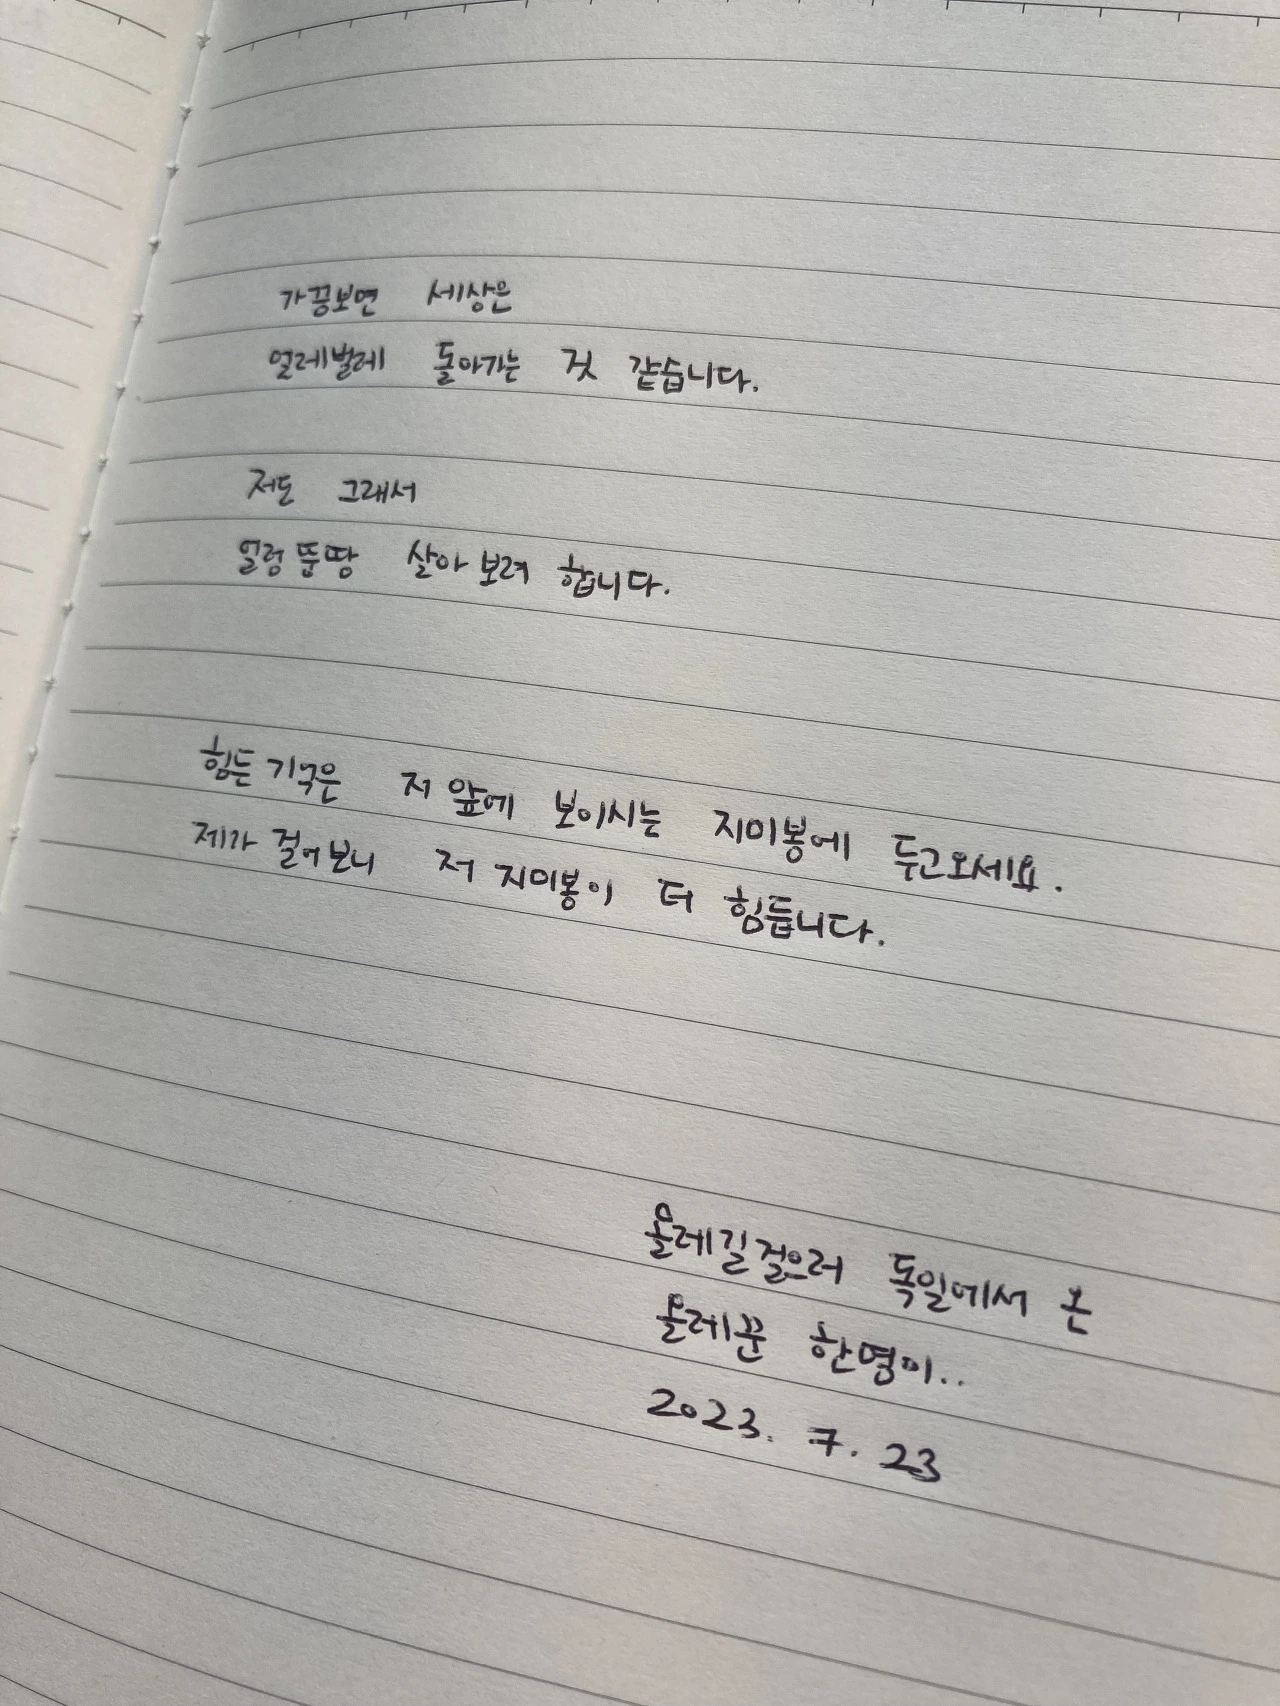 가끔보면 세상은
얼레벌레 돌아가는 것 같습니다.
저도 그래서
얼렁뚱땅 살아보려 합니다.
힘든 기억은 저 앞에 보이시는 지미봉에 두고오세요.
제가 걸어보니 저 지미봉이 더 힘듭니다.
올레길걸으러 독일에서 온
올레꾼 한영이..
2023. 7. 23